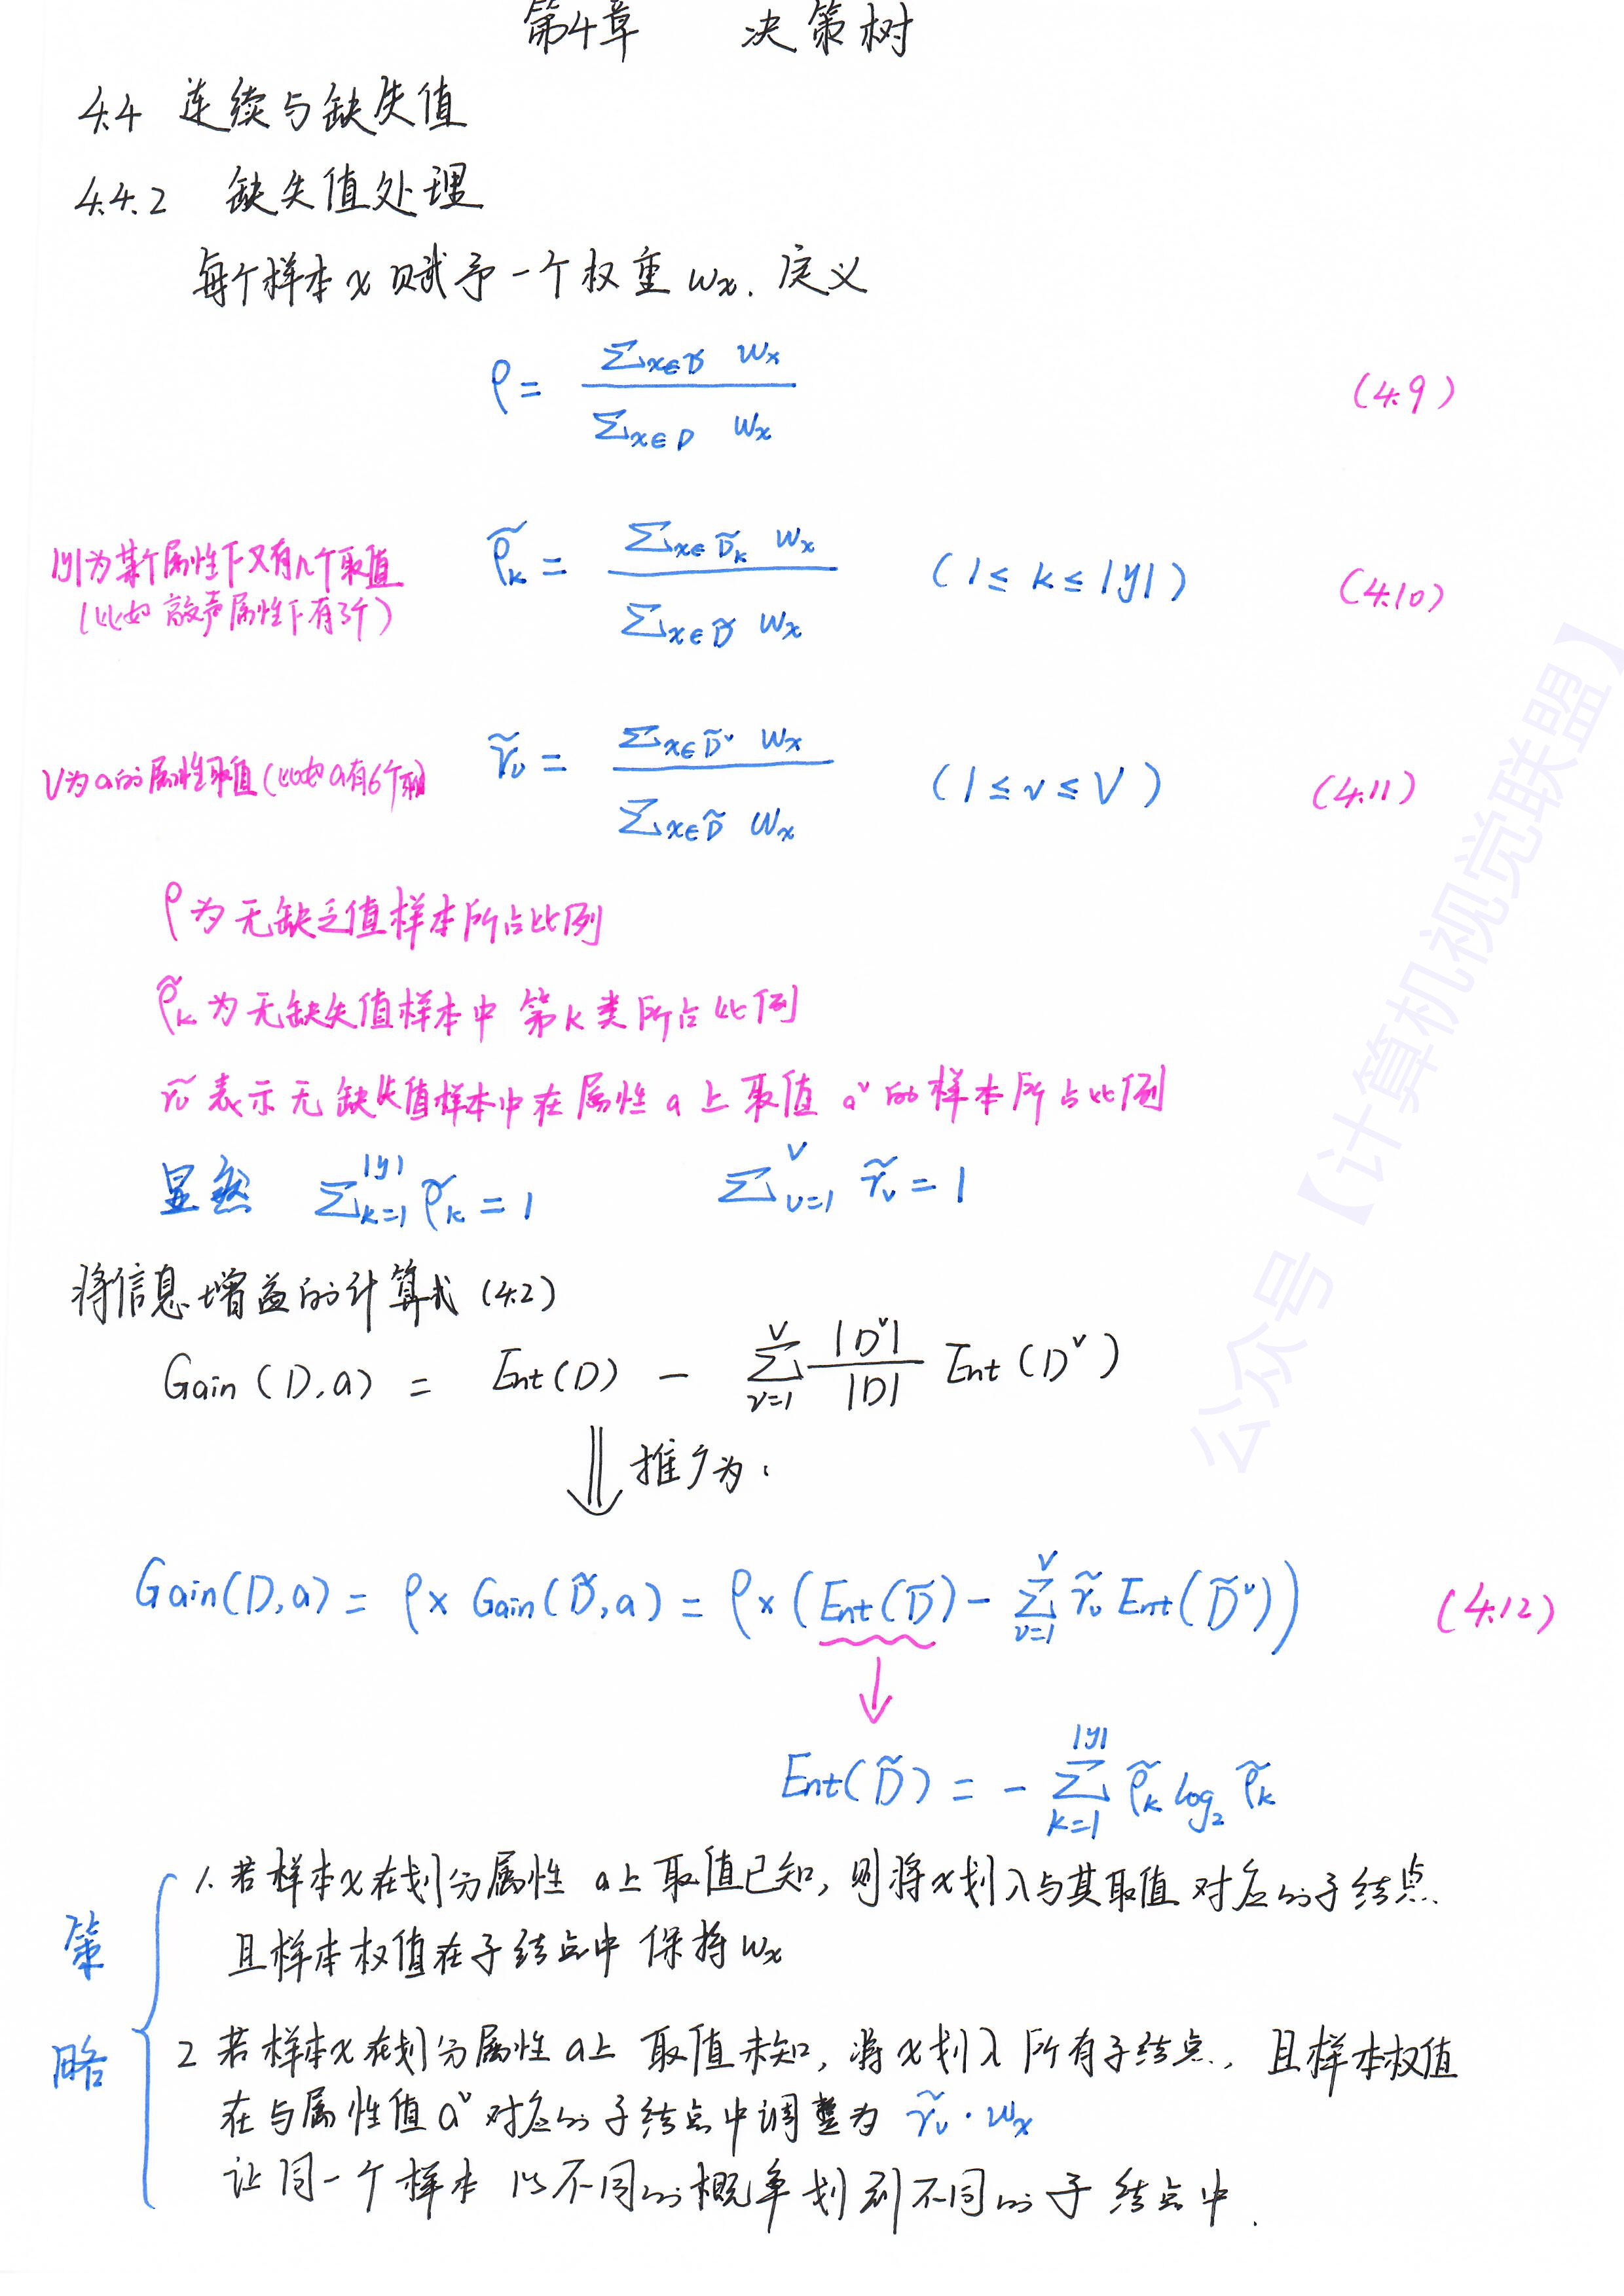 第4章 决策树
4.4 连续与缺失值
4.4.2 缺失值处理
每个样本x赋予一个权重 wx. 定义
ρ = ∑x∈D̃ wx / ∑x∈D wx (4.9)
|y|为某个属性下又有几个取值
(比如敲声属性下有3个)
ρ̃k = ∑x∈D̃k wx / ∑x∈D̃ wx (1≤ k ≤ |y|) (4.10)
V为a的属性取值(比如a有6个取值)
r̃v = ∑x∈D̃ᵛ wx / ∑x∈D̃ wx (1≤ v ≤ V) (4.11)
ρ为无缺乏值样本所占比例
ρ̃k为无缺失值样本中第k类所占比例
r̃v表示无缺失值样本中在属性a上取值aᵛ的样本所占比例
显然 ∑k=1|y| ρ̃k = 1 ∑v=1V r̃v = 1
将信息增益的计算式(4.2)
Gain(D,a) = Ent(D) - ∑v=1V |Dᵛ|/|D| Ent(Dᵛ)
⇓ 推广为:
Gain(D,a) = ρ× Gain(D̃,a) = ρ×(Ent(D̃) - ∑v=1V r̃v Ent(D̃ᵛ)) (4.12)
↓
Ent(D̃) = - ∑k=1|y| ρ̃k log2 ρ̃k
策略
1. 若样本x在划分属性 a上取值已知, 则将x划入与其取值对应的子结点.
且样本权值在子结点中保持wx
2 若样本x在划分属性a上 取值未知, 将x划入所有子结点, 且样本权值
在与属性值aᵛ对应的子结点中调整为 r̃v·wx
让同一个样本以不同的概率划到不同的子结点中.
公众号【计算机视觉联盟】